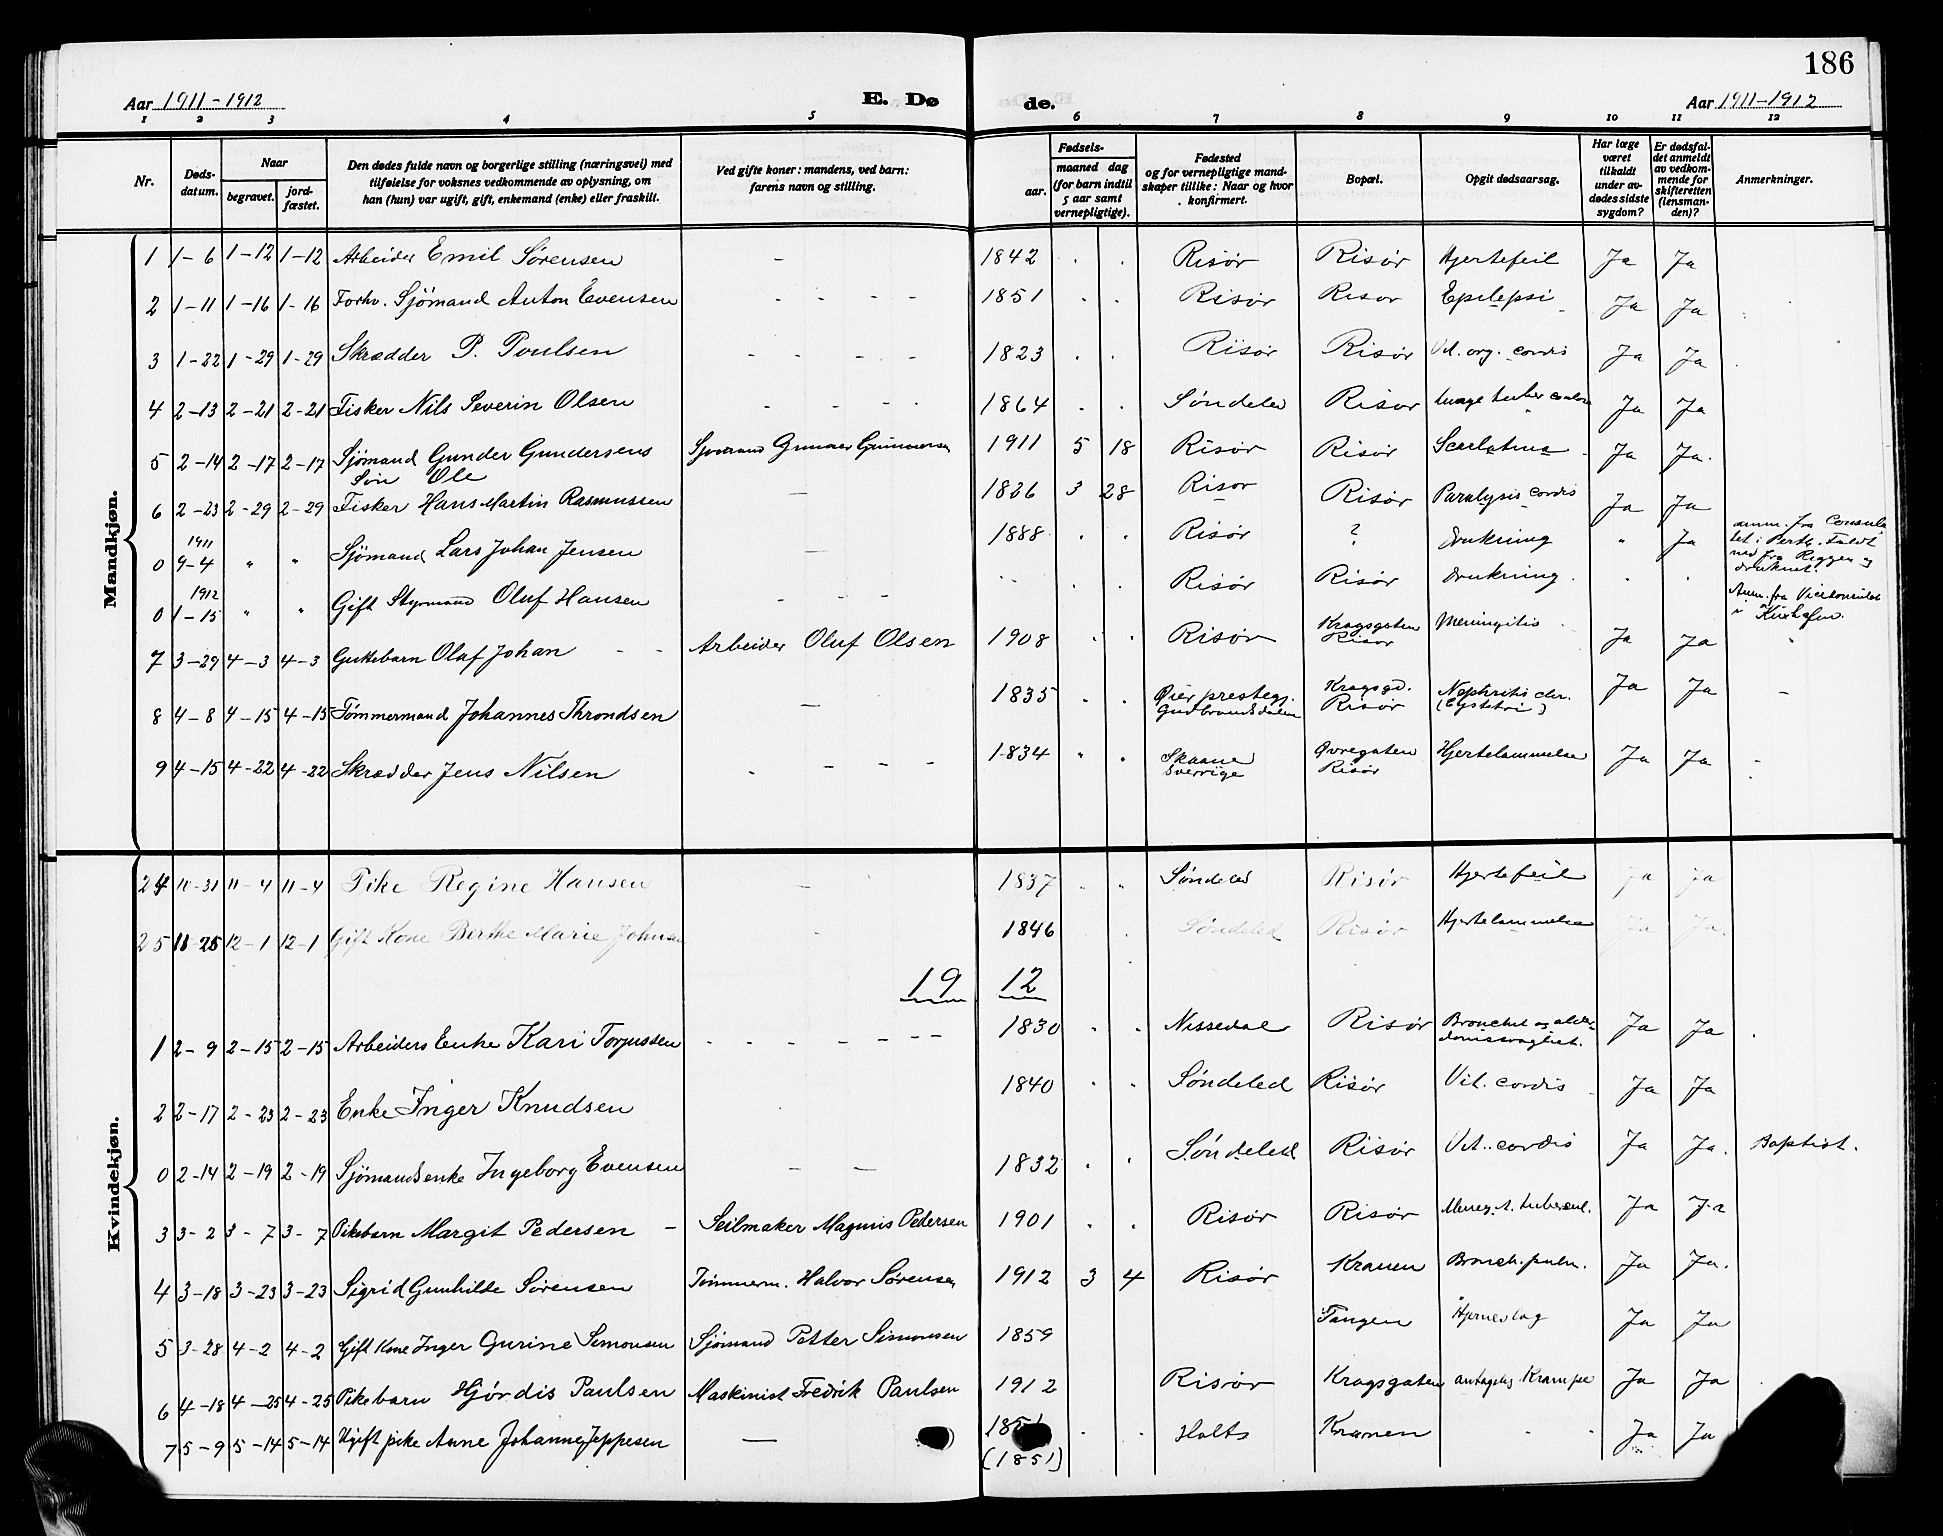 186
Aar 1911-1912 E. Dø de. Aar 1911-1912
1 2 3 4 5 6 7 8 9 10 11 12
Nr. Døds-datum. Naar begravet. jord-fæstet. Den dødes fulde navn og borgerlige stilling (næringsvei) med tilføielse for voksnes vedkommende av oplysning, om han (hun) var ugift, gift, enkemand (enke) eller fraskilt. Ved gifte koner: mandens, ved barn: farens navn og stilling. Fødsels- aar. maaned dag (for barn indtil 5 aar samt vernepligtige). Fødested og for vernepligtige mandskaper tillike: Naar og hvor konfirmert. Bopæl. Opgit dødsaarsag. Har læge været tilkaldt under avdødes sidste sygdom? Er dødsfaldet anmeldt av vedkommende for skifteretten (lensmanden)? Anmerkninger.
Mandkjøn.
1 1-6 1-12 1-12 Arbeider Emil Sørensen - 1842 . . Risør Risør Hjertefeil Ja Ja
2 1-11 1-16 1-16 Forhv. Sjömand Anton Evensen - - - - 1851 . . Risør Risør Epilepsi Ja Ja
3 1-22 1-29 1-29 Skrædder P. Poulsen - - - - 1823 . . Risør Risør Vit. org. cordis Ja Ja
4 2-13 2-21 2-21 Fisker Nils Severin Olsen - - - 1864 . . Søndeled Risør Ja Ja
5 2-14 2-17 2-17 Sjømand Gunder Gundersens Søn Ole Sjømand Gunder 1911 5 18 Risør Risør Scarlatina Ja Ja.
6 2-23 2-29 2-29 Fisker Hans Martin Rasmussen - 1826 3 28 Risør Risør Paralysis cordis Ja Ja
0 1911 9-4 " " Sjömand Lars Johan Jensen - 1888 . . Risør ? Drukning " Ja anm. fra Consulatet i Perth. Faldt ned fra Riggen og druknet.
0 1912 1-15 " " Gift Styrmand Oluf Hansen - - - Risør Risør Drukning . . Anm. fra Vicekonsulat i Kuxhafen.
7 3-29 4-3 4-3 Guttebarn Olaf Johan - - Arbeider Oluf Olsen 1908 . . Risør Kragsgaten Risør Meningitis Ja Ja "
8 4-8 4-15 4-15 Tømmermand Johannes Throndsen - 1835 . . Øier prestegj. Gudbrandsdalen Kragsgd. Risør Nephritis chr. (Cystitri) Ja Ja -
9 4-15 4-22 4-22 Skrædder Jens Nilsen - - - - 1834 " . Skaane Sverrige Øvregaten Risør Hjertelammelse Ja Ja -
Kvindekjøn.
24 10-31 11-4 11-4 Pike Regine Hansen - 1837 . . Søndeled Risør Hjertefeil Ja Ja
25 11-25 12-1 12-1 Gift Kone Berthe Marie Johnsen - 1846 . Søndeled Risør Hjertelammelse Ja Ja.
19 12
1 2-9 2-15 2-15 Arbeiders Enke Kari Torjussen - - - - - - - 1830 . . Nissedal Risør Bronchit og alderdomssvaghet. Ja Ja .
2 2-17 2-23 2-23 Enke Inger Knudsen 1840 . . Søndeled Risør Vit. cordis Ja Ja
0 2-14 2-19 2-19 Sjømandsenke Ingeborg Evensen - - 1832 . . Søndeled Risør Vit. cordis Ja Ja. Baptist.
3 3-2 3-7 3-7 Pikebarn Margit Pedersen - Seilmaker Magnus Pedersen 1901 . . Risør Risør Mening. tubercul. Ja Ja
4 3-18 3-23 3-23 Sigrid Gunhilde Sørensen Tømmerm. Halvor Sørensen 1912 3 4 Risør Kranen Bronch. pulm. Ja Ja.
5 3-28 4-2 4-2 Gift Kone Inger Gurine Simonsen Sjømand Petter Simonsen 1859 Tangen Hjerneslag Ja Ja
6 4-18 4-25 4-25 Pikebarn Hjördis Paulsen Maskinist Fredrik Paulsen 1912 Risør Kragsgaten antagelig Krampe Ja Ja
7 5-9 5-14 5-14 Ugift pike Anne Johanne Jeppesen - 1851 (1851) . . Holts Kranen - - Ja Ja